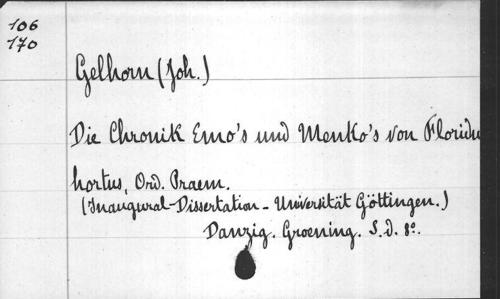 106
170
Gelhorn (Joh.)
Die Chronik Emo's und Menko's von Floridu
hortus, Ord. Praem.
(Inaugural-Dissertation - Universität Göttingen.)
Danzig. Groening. S.d. 8º.